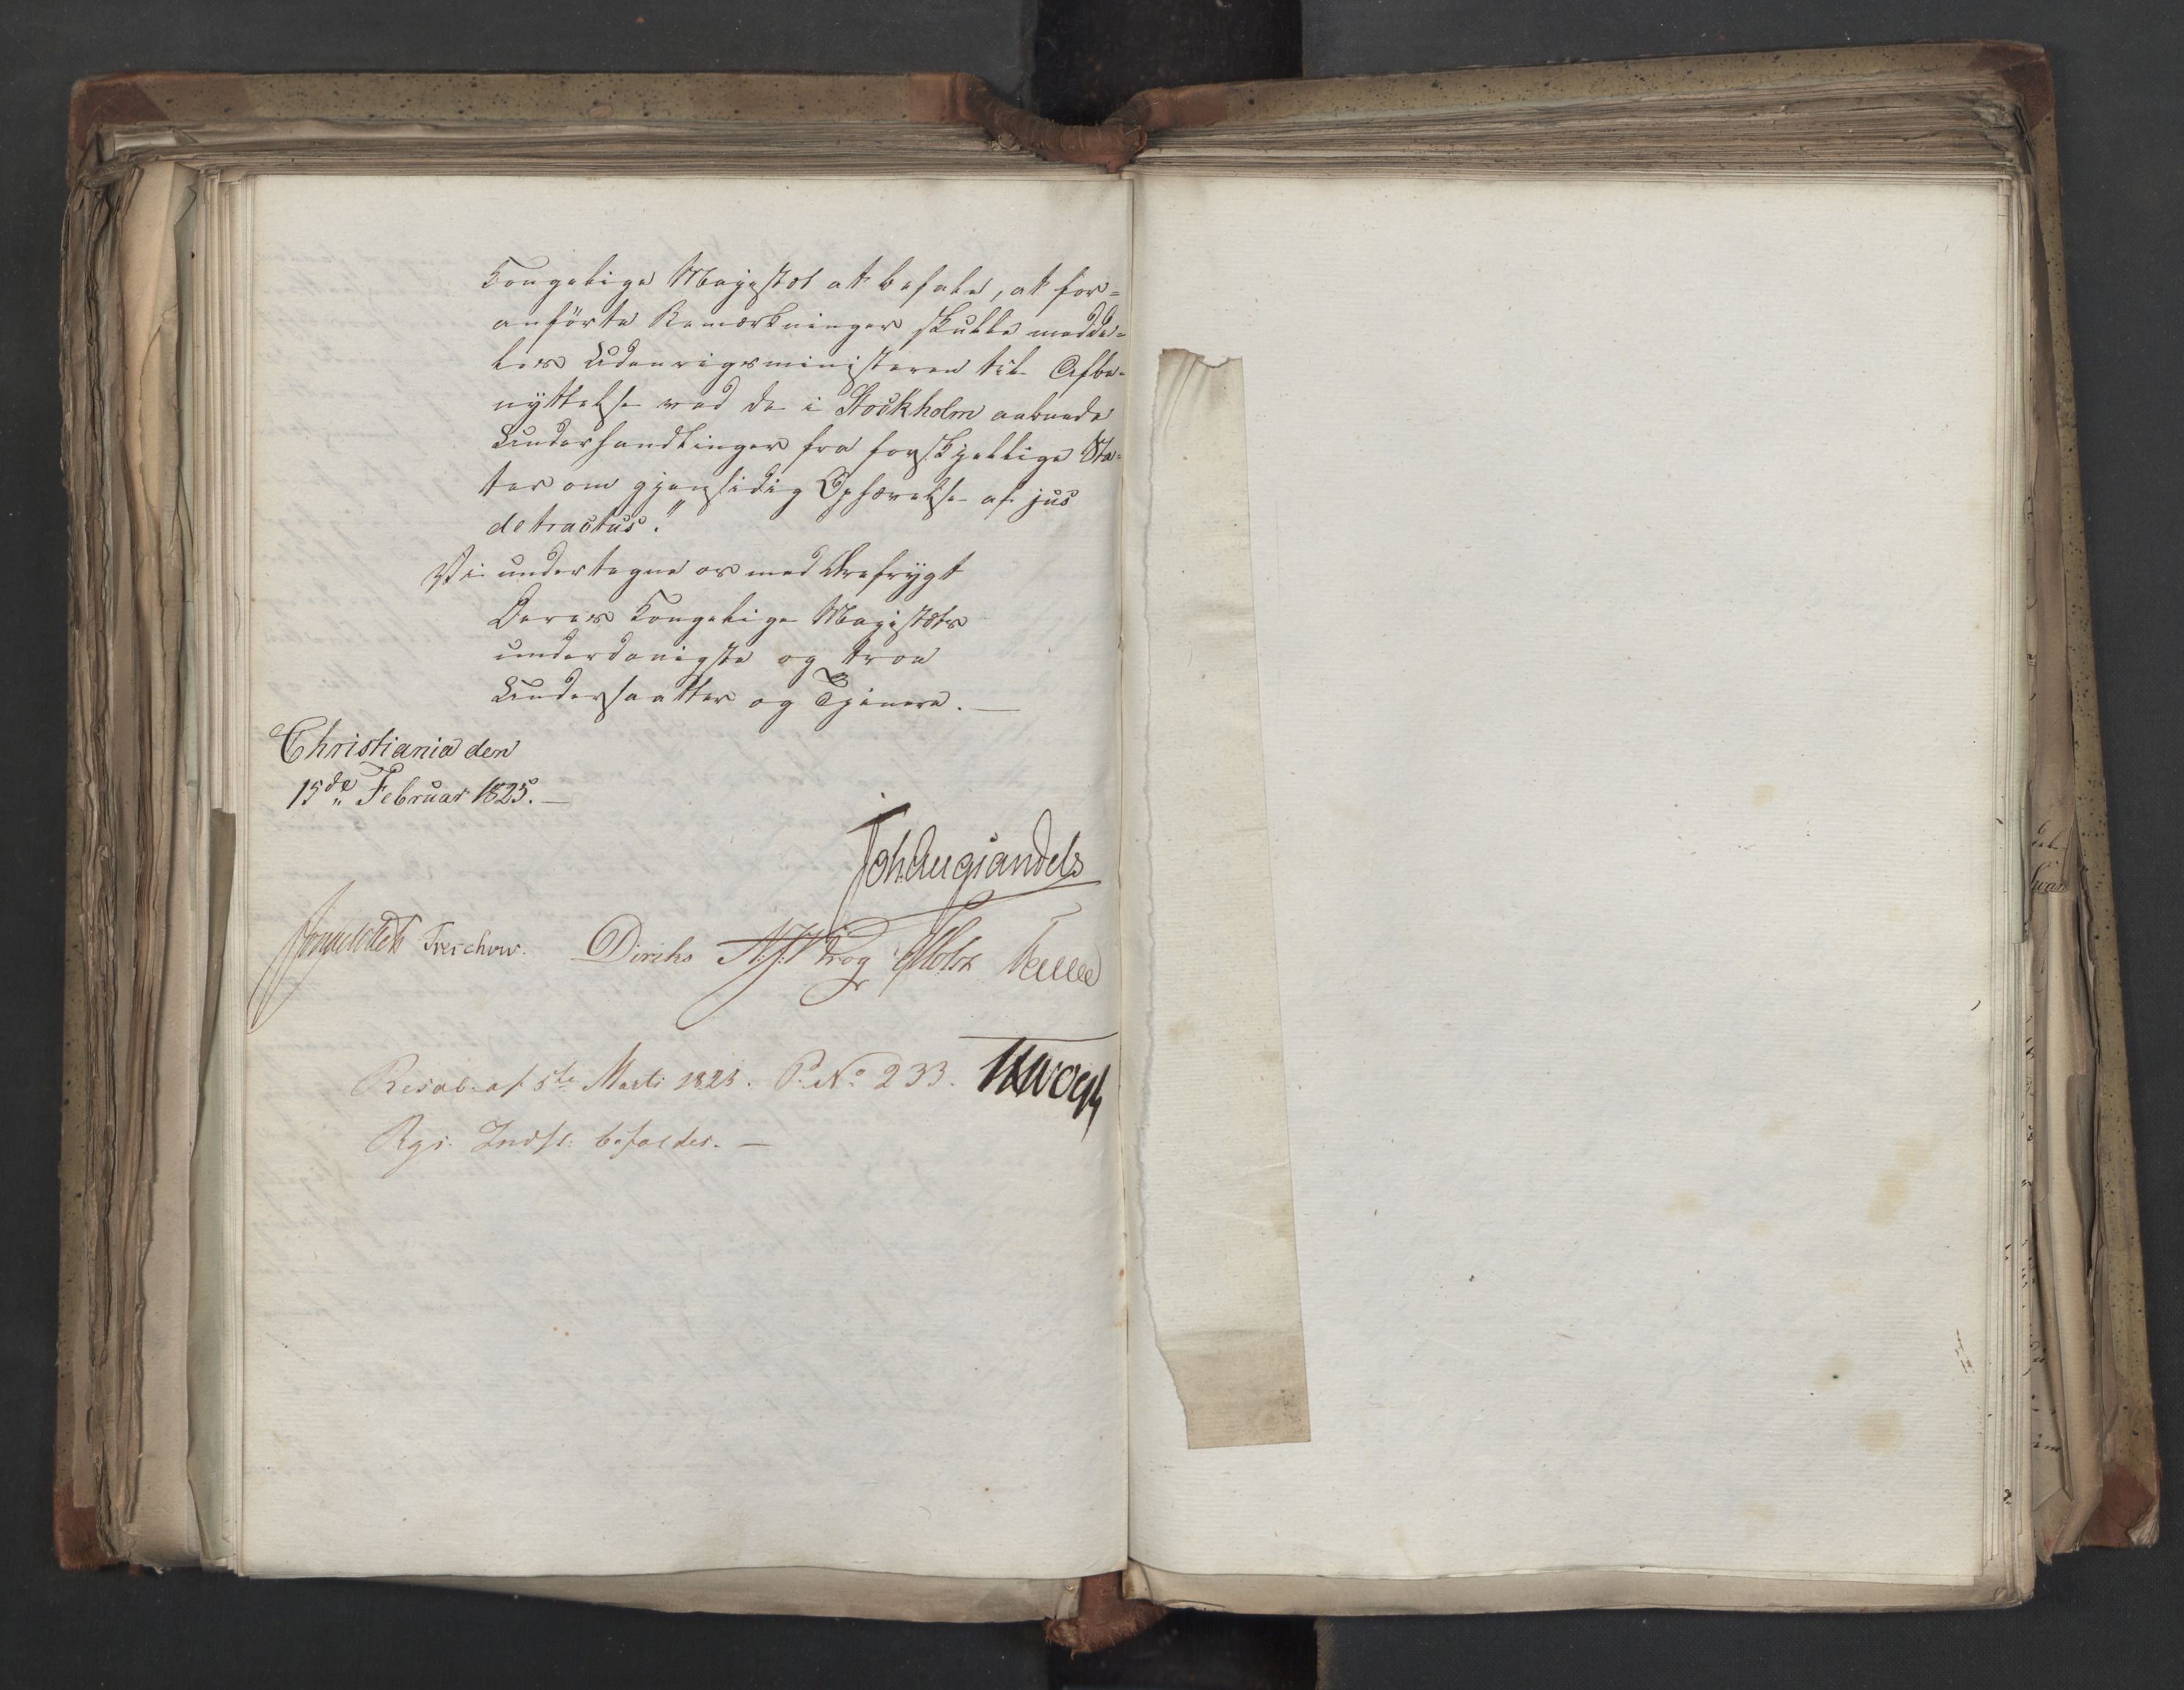 Kongelige Majestæt at befale, at for=
anförte Bemærkninger skulle medde=
les Udenrigsministeren til Afbe=
nyttelse ved de i Stockholm aabnede
Underhandlinger fra forskjellige Sta=
ter om gjensidig Ophævelse af jus
detractus."
Vi undertegne os med Ærefrygt
Deres Kongelige Majestæts
underdanigste og troe
Undersaatter og Tjenere. —
Christiania den
15de Februar 1825. —
Joh. Aug. Sandels
Sommerhielm Treschow. Diriks N. J. Krog J Collett
Resol. af 5te Marti 1825. P. No 233.
Rgs. Indst. bifaldes. —